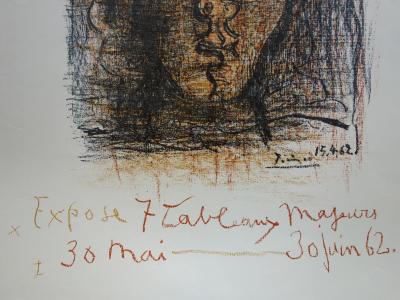 Picasso 15.4.62.
x Expose 7 Tableaux Majeurs
I 30 mai — 30 juin 62.